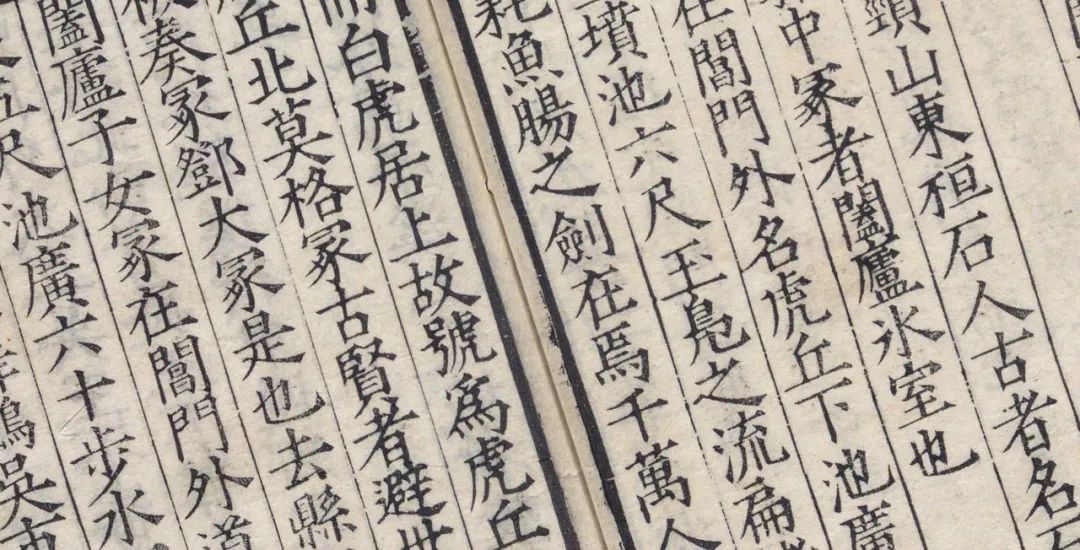 頸山東桓石人古者名石
中冢者闔廬氷室也
在閶門外名虎丘下池廣
墳池六尺玉鳧之流扁
耗魚腸之劍在焉千萬人
而白虎居上故號爲虎丘
丘北莫格冢古賢者避世
奏冢鄧大冢是也去縣
闔廬子女冢在閶門外道
五尺池廣六十步水
吳市